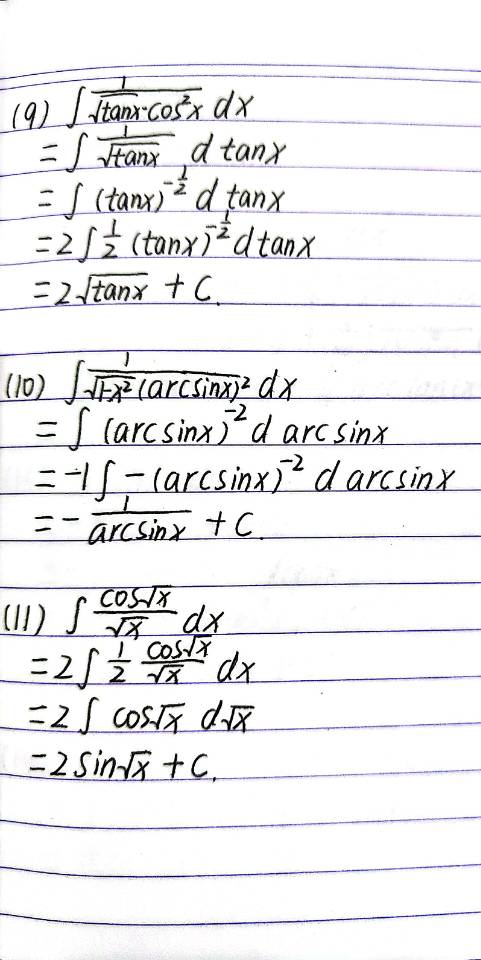 (9) ∫ 1/(√tanx·cos²x) dx
= ∫ 1/√tanx d tanx
= ∫ (tanx)^(-1/2) d tanx
= 2∫ 1/2 (tanx)^(-1/2) d tanx
= 2√tanx + C.
(10) ∫ 1/(√(1-x²)(arcsinx)²) dx
= ∫ (arcsinx)^(-2) d arcsinx
= -1∫ -(arcsinx)^(-2) d arcsinx
= - 1/arcsinx + C.
(11) ∫ cos√x/√x dx
= 2∫ 1/2 cos√x/√x dx
= 2∫ cos√x d√x
= 2sin√x + C.